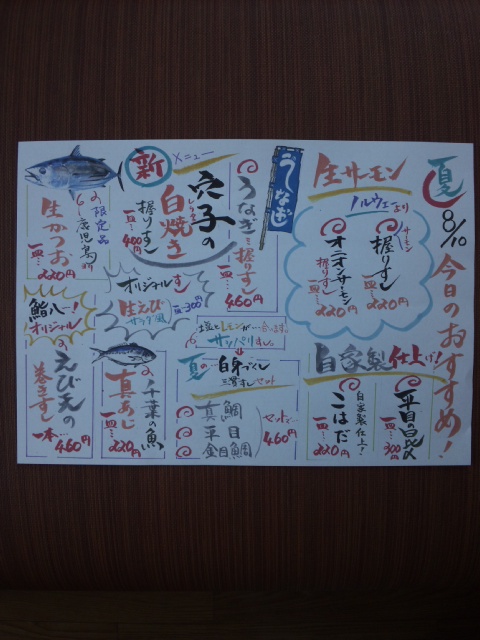 夏
8/10
今日のおすすめ!
生サーモン
ノルウェーより
サーモン
握りずし
一皿…220円
オニオンサーモン
握りずし
一皿…220円
自家製仕上げ!
平目の昆〆
一皿…300円
自家製仕上!
こはだ
一皿…220円
うなぎ
うなぎ握りずし
一皿…460円
新
メニュー
穴子の
白焼き
握りずし
一皿…400円
限定品
鹿児島
生かつお
一皿…220円
オリジナルすし
生えび
サラダ風
一皿…300円
塩とレモンが…合います。
サッパリすし。
夏の白身づくし
三貫すしセット
真鯛
平目
金目鯛
セットで…
460円
千葉の魚
真あじ
一皿…220円
鮨八!
オリジナル
えび天の
巻きずし
一本…460円